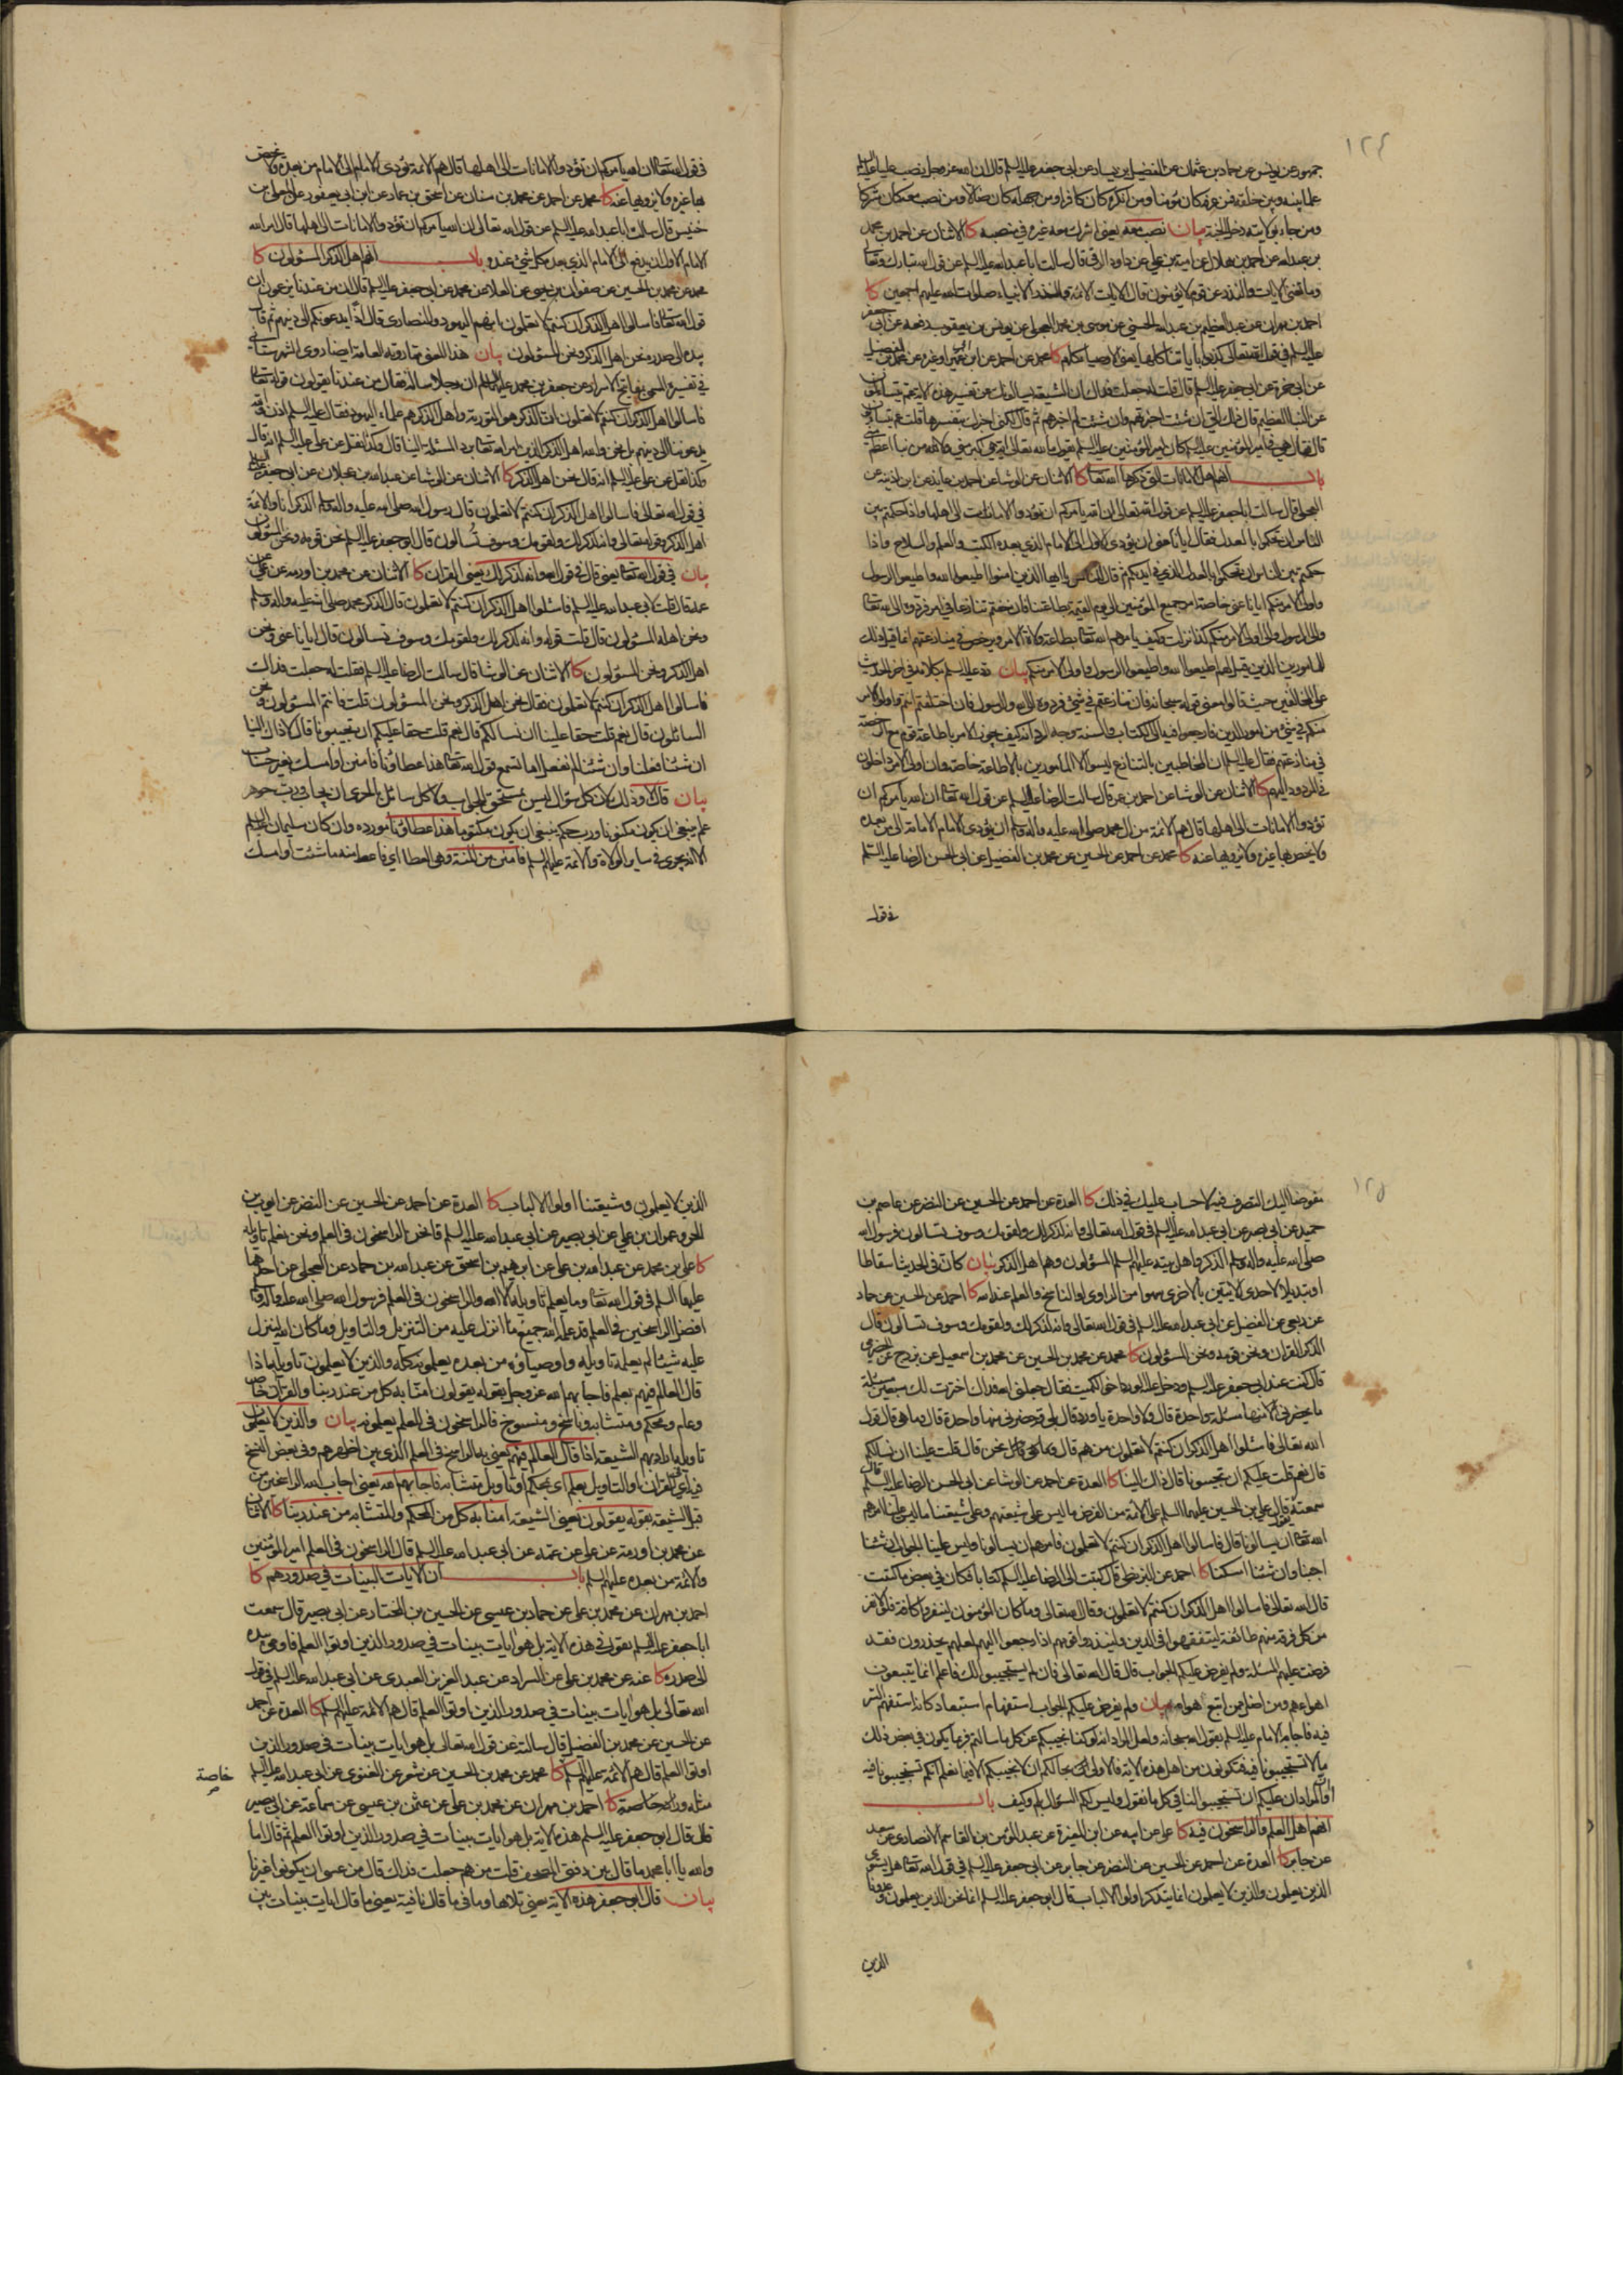 ١٢٤
جمهور عن يونس عن حماد بن عثمان عن الفضيل بن يسار عن ابي جعفر عليه السلم قال ان الله عز وجل نصب عليا عليه السلم
علما بينه وبين خلقه فمن عرفه كان مؤمنا ومن انكره كان كافرا ومن جهله كان ضالا ومن نصب معه كان مشركا
ومن جاء بولايته دخل الجنة بيان نصب معه يعني اشرك معه غيره في منصبه كا الاثنان عن احمد بن محمد
بن عبدالله عن احمد بن هلال عن امية بن علي عن داود الرقي قال سالت ابا عبدالله عليه السلم عن قول الله تبارك وتعالى
وما تغني الايات والنذر عن قوم لا يؤمنون قال الايات الائمة والنذر الانبياء صلوات الله عليهم اجمعين كا
احمد بن مهران عن عبد العظيم بن عبدالله الحسني عن موسى بن محمد العجلي عن يونس بن يعقوب رفعه عن ابي جعفر
عليه السلم في قول الله تعالى كذبوا باياتنا كلها يعني الاوصياء كلهم كا محمد عن احمد عن ابن ابي عمير او غيره عن محمد بن الفضيل
عن ابي حمزة عن ابي جعفر عليه السلم قال قلت له جعلت فداك ان الشيعة يسالونك عن تفسير هذه الاية عم يتساءلون
عن النبا العظيم قال ذلك الي ان شئت اخبرتهم وان شئت لم اخبرهم ثم قال لكني اخبرك بتفسيرها قلت عم يتساءلون
قال فقال هي في امير المؤمنين عليه السلم كان امير المؤمنين عليه السلم يقول ما لله تعالى اية هي اكبر مني ولا لله من نبا اعظم مني
باب انهم اهل الامانات التي ذكرها الله تعالى كا الاثنان عن الوشاء عن احمد بن عايذ عن ابن اذينة عن
العجلي قال سالت ابا جعفر عليه السلم عن قول الله تعالى ان الله يامركم ان تؤدوا الامانات الى اهلها واذا حكمتم بين
الناس ان تحكموا بالعدل فقال ايانا عنى ان يؤدي الاول الى الامام الذي بعده الكتب والعلم والسلاح واذا
حكمتم بين الناس ان تحكموا بالعدل الذي في ايديكم ثم قال للناس يا ايها الذين امنوا اطيعوا الله واطيعوا الرسول
واولى الامر منكم ايانا عنى خاصة امر جميع المؤمنين الى يوم القيمة بطاعتنا فان خفتم تنازعا في امر فردوه الى الله تعالى
والى الرسول والى اولى الامر منكم كذا نزلت وكيف يامرهم الله تعالى بطاعة ولاة الامر ويرخص في منازعتهم انما قيل ذلك
للمامورين الذين قيل لهم اطيعوا الله واطيعوا الرسول واولى الامر منكم بيان رد عليه السلم بكلامه في اخر الحديث
على المخالفين حيث قالوا معنى قوله سبحانه فان تنازعتم في شيء فردوه الى الله والرسول فان اختلفتم انتم واولوا الامر
منكم في شيء من امور الدين فارجعوا فيه الى الكتاب والسنة وجه الرد انه كيف يجوز الامر باطاعة قوم مع الرخصة
في منازعتهم فقال عليه السلم ان المخاطبين بالتنازع ليسوا الا المامورين بالاطاعة خاصة وان اولى الامر داخلون
في المردود اليهم كا الاثنان عن الوشاء عن احمد بن عمر قال سالت الرضا عليه السلم عن قول الله تعالى ان الله يامركم ان
تؤدوا الامانات الى اهلها قال هم الائمة من ال محمد صلى الله عليه واله وسلم ان يؤدي الامام الامانة الى من بعده
ولا يخص بها غيره ولا يزويها عنه كا محمد عن احمد عن الحسين عن محمد بن الفضيل عن ابي الحسن الرضا عليه السلم
في قول
في قول الله تعالى ان الله يامركم ان تؤدوا الامانات الى اهلها قال هم الائمة يؤدي الامام الى الامام من بعده ولا يخص
بها غيره ولا يزويها عنه كا محمد عن احمد عن محمد بن سنان عن اسحق بن عمار عن ابن ابي يعفور عن المعلى بن
خنيس قال سالت ابا عبدالله عليه السلم عن قول الله تعالى ان الله يامركم ان تؤدوا الامانات الى اهلها قال امر الله
الامام الاول ان يدفع الى الامام الذي بعده كل شيء عنده باب انهم اهل الذكر المسئولون كا
محمد عن محمد بن الحسين عن صفوان بن يحيى عن العلا عن محمد عن ابي جعفر عليه السلم قال ان من عندنا يزعمون ان
قول الله تعالى فاسالوا اهل الذكر ان كنتم لا تعلمون انهم اليهود والنصارى قال اذا يدعونكم الى دينهم ثم قال
بيده الى صدره نحن اهل الذكر ونحن المسؤلون بيان هذا المعنى مما روته العامة ايضا روى الشهرستاني
في تفسيره المسمى بمفاتيح الاسرار عن جعفر بن محمد عليهما السلم ان رجلا ساله فقال من عندنا يقولون قوله تعالى
فاسالوا اهل الذكر ان كنتم لا تعلمون ان الذكر هو التورية واهل الذكر هم علماء اليهود فقال عليه السلم اذن والله
يدعوننا الى دينهم بل نحن والله اهل الذكر الذين امر الله تعالى برد المسئلة الينا قال وكذا نقل عن علي عليه السلم انه قال
وكذا نقل عن علي عليه السلم انه قال نحن اهل الذكر كا الاثنان عن الوشاء عن عبدالله بن عجلان عن ابي جعفر عليه السلم
في قول الله تعالى فاسالوا اهل الذكر ان كنتم لا تعلمون قال رسول الله صلى الله عليه واله وسلم الذكر انا والائمة
اهل الذكر وقوله تعالى وانه لذكر لك ولقومك وسوف تسالون قال ابو جعفر عليه السلم نحن قومه ونحن المسؤلون
بيان في قول الله تعالى يعني قال في قول الله وانه لذكر لك يعني القران كا الاثنان عن محمد بن اورمه عن علي عن
عمه قال قلت لابي عبدالله عليه السلم فاسئلوا اهل الذكر ان كنتم لا تعلمون قال الذكر محمد صلى الله عليه واله وسلم
ونحن اهله المسؤلون قال قلت قوله وانه لذكر لك ولقومك وسوف تسالون قال ايانا عنى ونحن
اهل الذكر ونحن المسؤلون كا الاثنان عن الوشاء قال سالت الرضا عليه السلم فقلت له جعلت فداك
فاسالوا اهل الذكر ان كنتم لا تعلمون فقال نحن اهل الذكر ونحن المسؤلون قلت فانتم المسؤلون ونحن
السائلون قال نعم قلت حقا علينا ان نسالكم قال نعم قلت حقا عليكم ان تجيبونا قال لا ذاك الينا
ان شئنا فعلنا وان شئنا لم نفعل اما تسمع قول الله تعالى هذا عطاؤنا فامنن او امسك بغير حساب
بيان قال لا وذلك لان كل سؤال ليس بمستحق للجواب ولا كل سائل بالحري ان يجاب ورب جوهر
علم ينبغي ان يكون مكنونا ورب حكم ينبغي ان يكون مكتوما هذا عطاؤنا مورده وان كان سليمان عليه السلم
الا انه يجري في ساير الولاة والائمة عليهم السلم فامنن من المنة وهي العطا اي فاعط منه ما شئت او امسك
١٢٥
مفوضا اليك التصرف فيه لا حساب عليك في ذلك كا العدة عن احمد عن الحسين عن النضر عن عاصم بن
حميد عن ابي بصير عن ابي عبدالله عليه السلم في قول الله تعالى وانه لذكر لك ولقومك وسوف تسالون فرسول الله
صلى الله عليه واله وسلم الذكر واهل بيته عليهم السلم المسؤلون وهم اهل الذكر بيان كان في الحديث اسقاطا
او تبديلا لاحدى الايتين بالاخرى سهوا من الراوي او الناسخ والعلم عند الله كا احمد عن الحسين عن حماد
عن ربعي عن الفضيل عن ابي عبدالله عليه السلم في قول الله تعالى وانه لذكر لك ولقومك وسوف تسالون قال
الذكر القران ونحن قومه ونحن المسؤلون كا محمد عن محمد بن الحسين عن محمد بن اسمعيل عن بزرج عن الحضرمي
قال كنت عند ابي جعفر عليه السلم ودخل عليه الورد اخو الكميت فقال جعلني الله فداك اخترت لك سبعين مسئلة
ما يحضرني منها مسئلة واحدة قال ولا واحدة يا ورد قال بلى قد حضرني منها واحدة قال وما هي قال قول
الله تعالى فاسئلوا اهل الذكر ان كنتم لا تعلمون من هم قال نحن قال قلت علينا ان نسالكم
قال نعم قلت عليكم ان تجيبونا قال ذاك الينا كا العدة عن احمد عن الوشاء عن ابي الحسن الرضا عليه السلم قال
سمعته يقول قال علي بن الحسين عليهما السلم على الائمة من الفرض ما ليس على شيعتهم وعلى شيعتنا ما ليس علينا امرهم
الله تعالى ان يسالونا قال فاسالوا اهل الذكر ان كنتم لا تعلمون فامرهم ان يسالونا وليس علينا الجواب ان شئنا
اجبنا وان شئنا امسكنا كا احمد عن البزنطي قال كتبت الى الرضا عليه السلم كتابا فكان في بعض ما كتبت
قال الله تعالى فاسالوا اهل الذكر ان كنتم لا تعلمون وقال الله تعالى وما كان المؤمنون لينفروا كافة فلولا نفر
من كل فرقة منهم طائفة ليتفقهوا في الدين ولينذروا قومهم اذا رجعوا اليهم لعلهم يحذرون فقد
فرضت عليهم المسئلة ولم يفرض عليكم الجواب قال قال الله تعالى فان لم يستجيبوا لك فاعلم انما يتبعون
اهواءهم ومن اضل ممن اتبع هواه بيان ولم يفرض عليكم الجواب استفهام استبعاد كانه استفهم السر
فيه فاجابه الامام عليه السلم بقول الله سبحانه ولعل المراد انه لو كنا نجيبكم عن كل ما سالتم فربما يكون في بعض ذلك
ما لا تستجيبونا فيه فتكونون من اهل هذه الاية فالاولى بحالكم ان لا نجيبكم الا فيما نعلم انكم تستجيبونا فيه
او ان المراد ان عليكم ان تستجيبوا لنا في كل ما نقول وليس لكم السؤال بلم وكيف باب
انهم اهل العلم والراسخون فيه كا علي عن ابيه عن ابن المغيرة عن عبد المؤمن بن القاسم الانصاري عن سعد
عن جابر كا العدة عن احمد عن الحسين عن النضر عن جابر عن ابي جعفر عليه السلم في قول الله تعالى هل يستوي
الذين يعلمون والذين لا يعلمون انما يتذكر اولوا الالباب قال ابو جعفر عليه السلم انما نحن الذين يعلمون وعدونا
الذين
الذين لا يعلمون وشيعتنا اولوا الالباب كا العدة عن احمد عن الحسين عن النضر عن ايوب بن
الحر وعمران بن علي عن ابي بصير عن ابي عبدالله عليه السلم قال نحن الراسخون في العلم ونحن نعلم تاويله
كا علي بن محمد عن عبدالله بن علي عن ابرهيم بن اسحق عن عبدالله بن حماد عن العجلي عن احدهما
عليهما السلم في قول الله تعالى وما يعلم تاويله الا الله والراسخون في العلم فرسول الله صلى الله عليه واله وسلم
افضل الراسخين في العلم قد علمه الله جميع ما انزل عليه من التنزيل والتاويل وما كان الله لينزل
عليه شيئا لم يعلمه تاويله واوصياؤه من بعده يعلمونه كله والذين لا يعلمون تاويله اذا
قال العالم فيهم بعلم فاجابهم الله عز وجل بقوله يقولون امنا به كل من عند ربنا والقران خاص
وعام ومحكم ومتشابه وناسخ ومنسوخ فالراسخون في العلم يعلمونه بيان والذين لا يعلمون
تاويله اراد بهم الشيعة اذا قال العالم فيهم يعني به الراسخ في العلم الذي بين اظهرهم وفي بعض النسخ
فيه اي القران او التاويل بعلم اي بمحكم او تاويل متشابه فاجابهم الله يعني اجاب الله الراسخين من
قبل الشيعة بقوله يقولون يعني الشيعة امنا به كل من المحكم والمتشابه من عند ربنا كا الاثنان
عن محمد بن اورمة عن علي عن عمه عن ابي عبدالله عليه السلم قال الراسخون في العلم امير المؤمنين
والائمة من بعده عليهم السلم باب ان الايات البينات في صدورهم كا
احمد بن مهران عن محمد بن علي عن حماد بن عيسى عن الحسين بن المختار عن ابي بصير قال سمعت
ابا جعفر عليه السلم يقول في هذه الاية بل هو ايات بينات في صدور الذين اوتوا العلم فاومى بيده
الى صدره كا عنه عن محمد بن علي عن السراد عن عبد العزيز العبدي عن ابي عبدالله عليه السلم في قول
الله تعالى بل هو ايات بينات في صدور الذين اوتوا العلم قال هم الائمة عليهم السلم كا العدة عن احمد
عن الحسين عن محمد بن الفضيل قال سالته عن قول الله تعالى بل هو ايات بينات في صدور الذين
اوتوا العلم قال هم الائمة عليهم السلم كا محمد عن محمد بن الحسين عن شعر عن الغنوي عن ابي عبدالله عليه السلم
خاصة
مثله وزاد خاصة كا احمد بن مهران عن محمد بن علي عن عثمن بن عيسى عن سماعة عن ابي بصير
قال قال ابو جعفر عليه السلم هذه الاية بل هو ايات بينات في صدور الذين اوتوا العلم ثم قال اما
والله يا ابا محمد ما قال بين دفتي المصحف قلت من هم جعلت فداك قال من عسى ان يكونوا غيرنا
بيان قال ابو جعفر هذه الاية يعني تلاها وما في ما قال نافية يعني ما قال ايات بينات بين